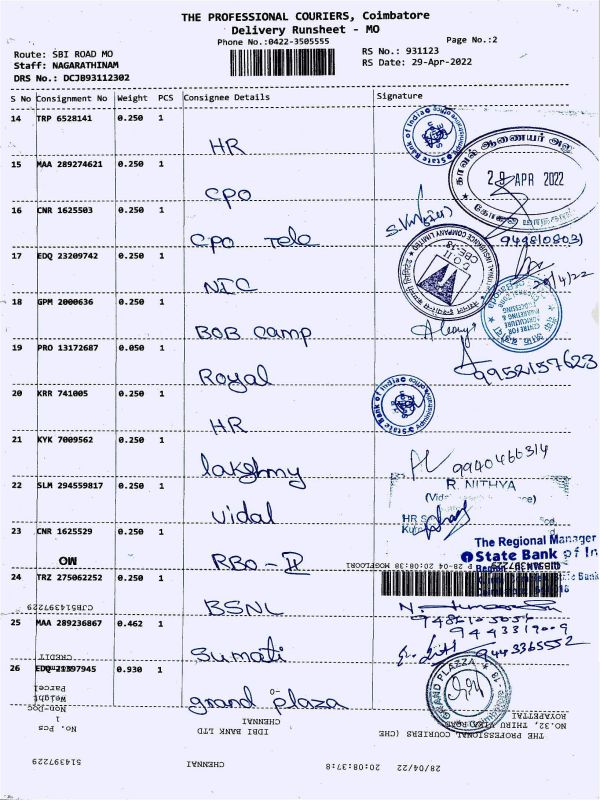 THE PROFESSIONAL COURIERS, Coimbatore
Delivery Runsheet - MO
Phone No.:0422-3505555
Page No.:2
Route: SBI ROAD MO
RS No.: 931123
Staff: NAGARATHINAM
RS Date: 29-Apr-2022
DRS No.: DCJB93112302
S No Consignment No Weight PCS Consignee Details Signature
14 TRP 6528141 0.250 1 HR
State Bank of India
15 MAA 289274621 0.250 1 CPO
காவல் ஆணையர்
29 APR 2022
16 CNR 1625503 0.250 1 CPO Tele
9498108031
17 EDQ 23209742 0.250 1 NIC
INSURANCE COMPANY LIMITED
29/4/22
18 GPM 2000636 0.250 1 BOB Camp
CENTRE FOR AGRICULTURE MARKETING & PROCESSING
19 PRO 13172687 0.050 1 Royal
9952157623
20 KRR 741005 0.250 1 HR
State Bank of India
21 KYK 7009562 0.250 1 lakshmy
9940466314
22 SLM 294559817 0.250 1 Vidal
R. NITHYA
23 CNR 1625529 0.250 1 RBO - II
The Regional Manager
State Bank of In
MO
24 TRZ 275062252 0.250 1 BSNL
CJB514397229
25 MAA 289236867 0.462 1 Sumati
9443365552
CREDIT
26 EDQ 0.930 1 grand plaza
GRAND PLAZZA
Non-Doc
Parcel
Weight
No. Pcs
1
IDBI BANK LTD
CHENNAI
THE PROFESSIONAL COURIERS (CHE)
ROYAPETTAI
514397229
CHENNAI
28/04/22 20:08:37:8